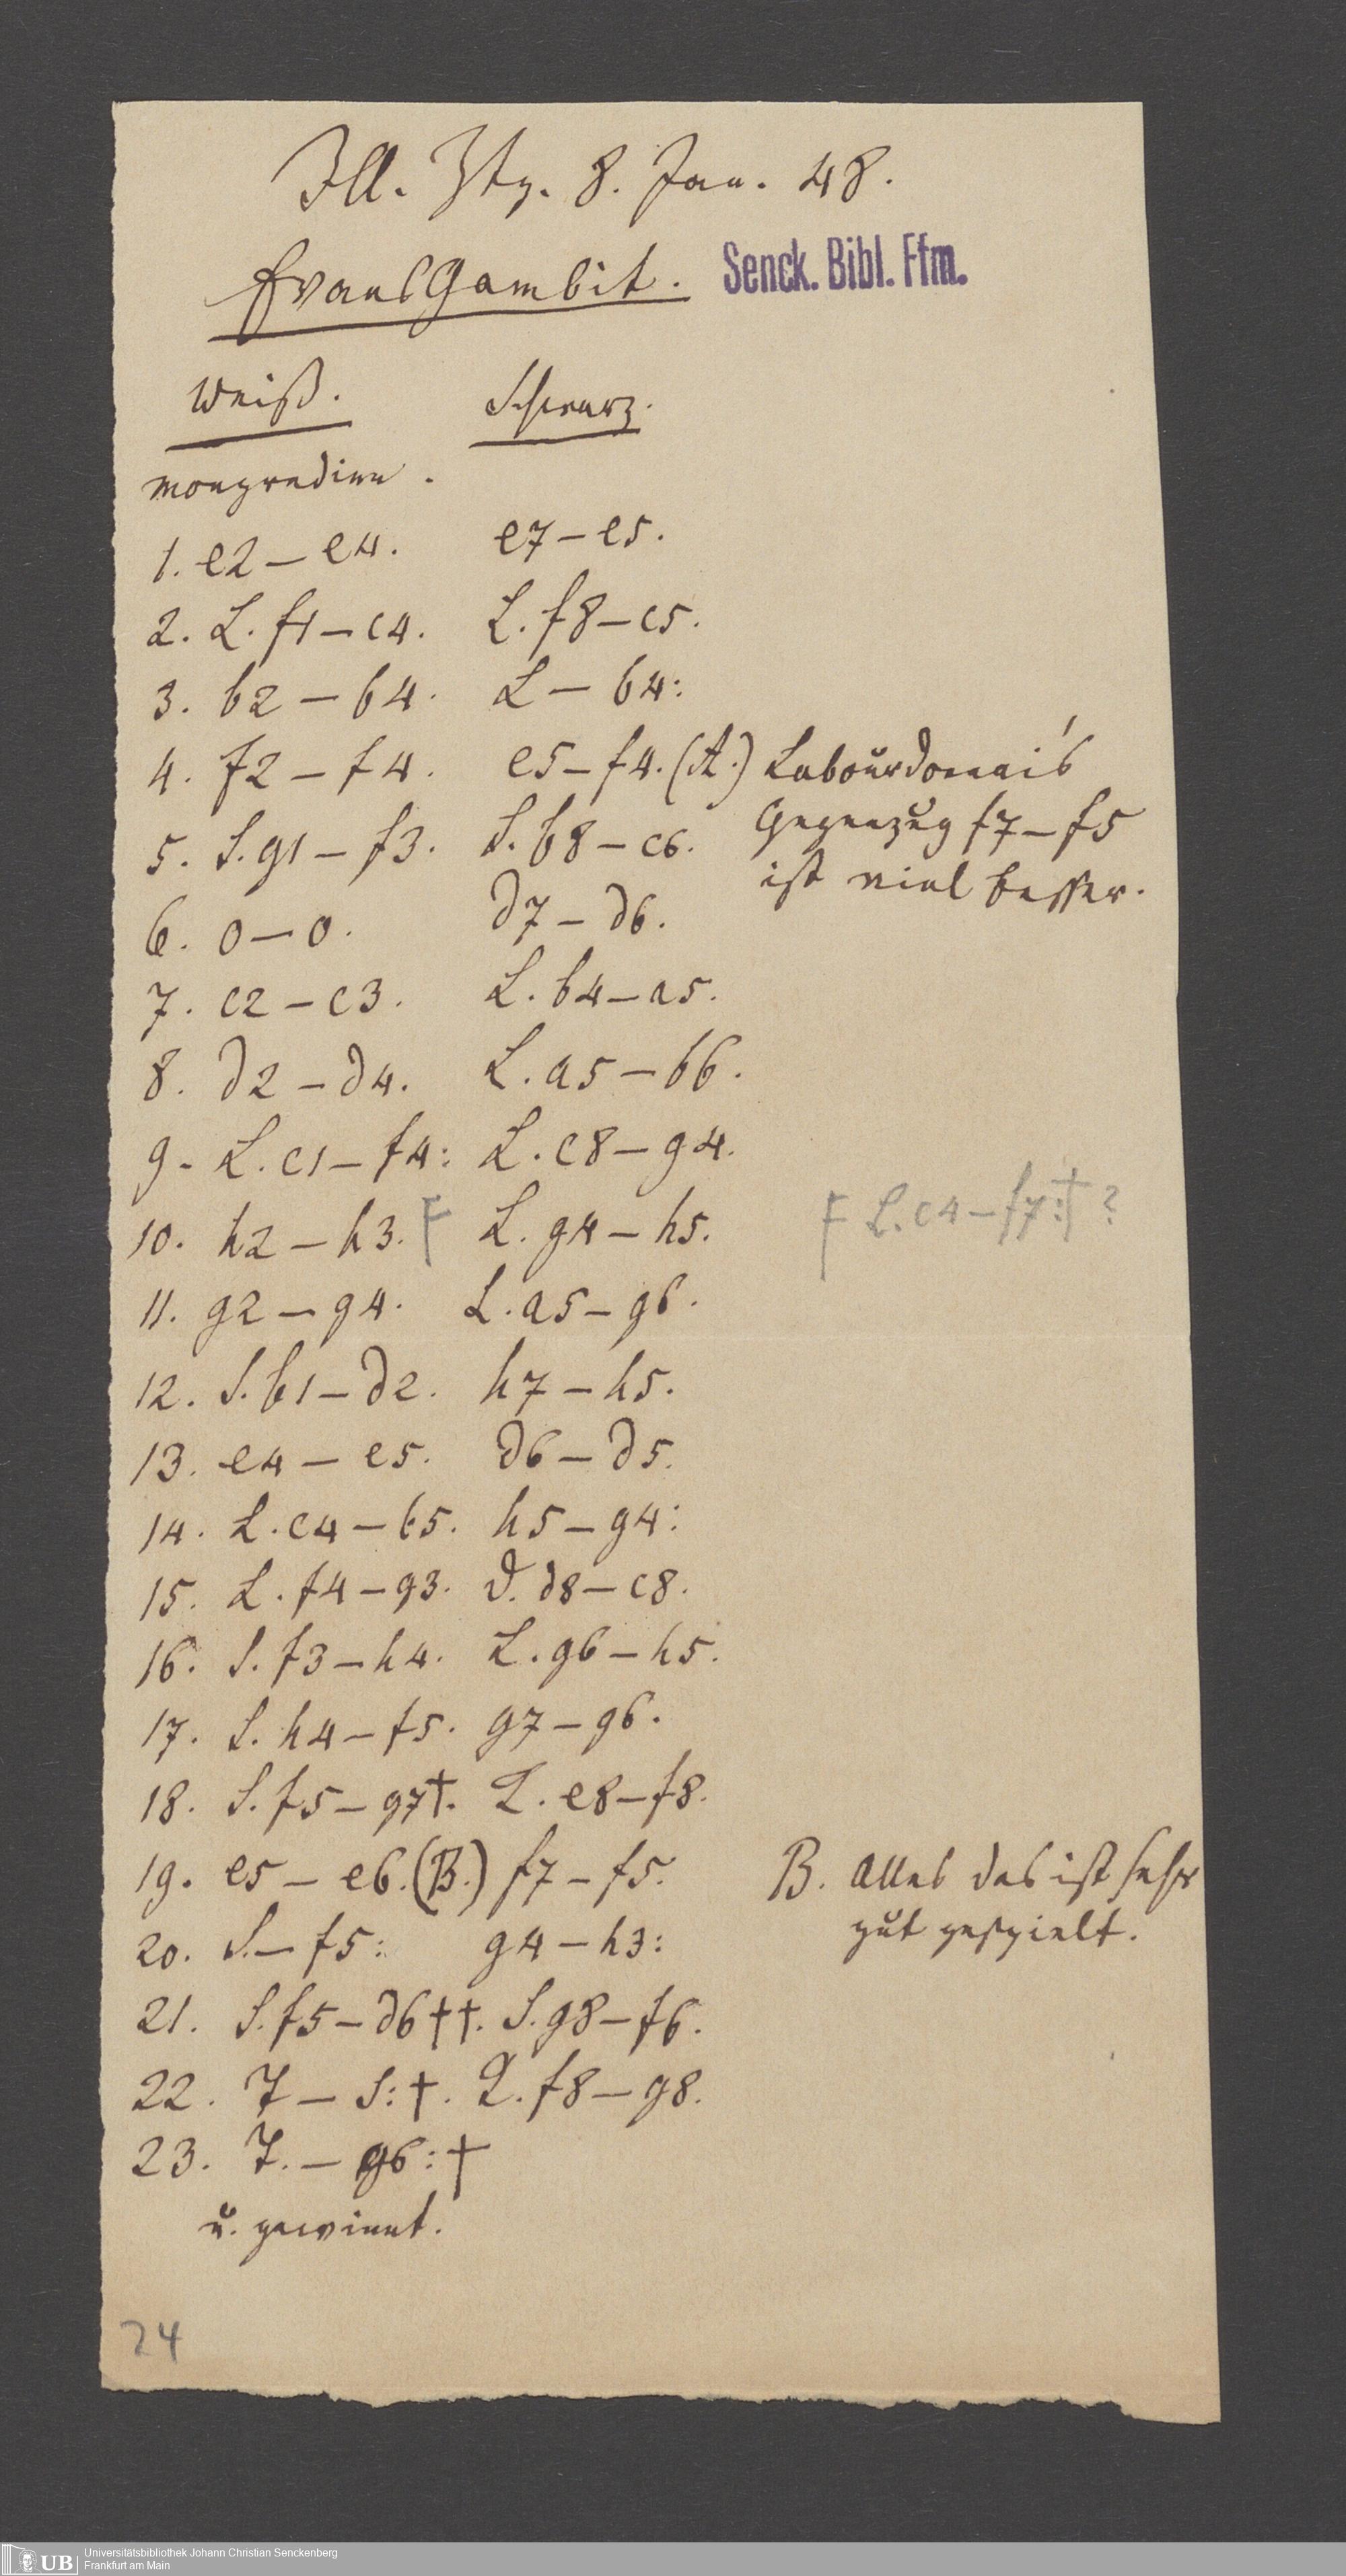 Ill. Ztg. 8. Jan. 48.
Evans Gambit. Senck. Bibl. Ffm.
Weiß. Schwarz.
Mongredien.
1. e2 – e4. e7 – e5.
2. L. f1 – c4. L. f8 – c5.
3. b2 – b4. L – b4:
4. f2 – f4. e5 – f4. (A.) Labourdonnai's
5. S. g1 – f3. S. b8 – c6. Gegenzug f7 – f5
ist viel besser.
6. 0 – 0. d7 – d6.
7. c2 – c3. L. b4 – a5.
8. d2 – d4. L. a5 – b6.
9. L. c1 – f4: L. c8 – g4.
10. h2 – h3. F L. g4 – h5. F L. c4 – f7:† ?
11. g2 – g4. L. a5 – g6.
12. S. b1 – d2. h7 – h5.
13. e4 – e5. d6 – d5.
14. L. c4 – b5. h5 – g4:
15. L. f4 – g3. D. d8 – c8.
16. S. f3 – h4. L. g6 – h5.
17. S. h4 – f5. g7 – g6.
18. S. f5 – g7†. K. e8 – f8.
19. e5 – e6. (B.) f7 – f5. B. Alles das ist sehr
gut gespielt.
20. S. – f5: g4 – h3:
21. S. f5 – d6††. S. g8 – f6.
22. T – S:†. K. f8 – g8.
23. T. – g6:†
u. gewinnt.
24
UB Universitätsbibliothek Johann Christian Senckenberg
Frankfurt am Main